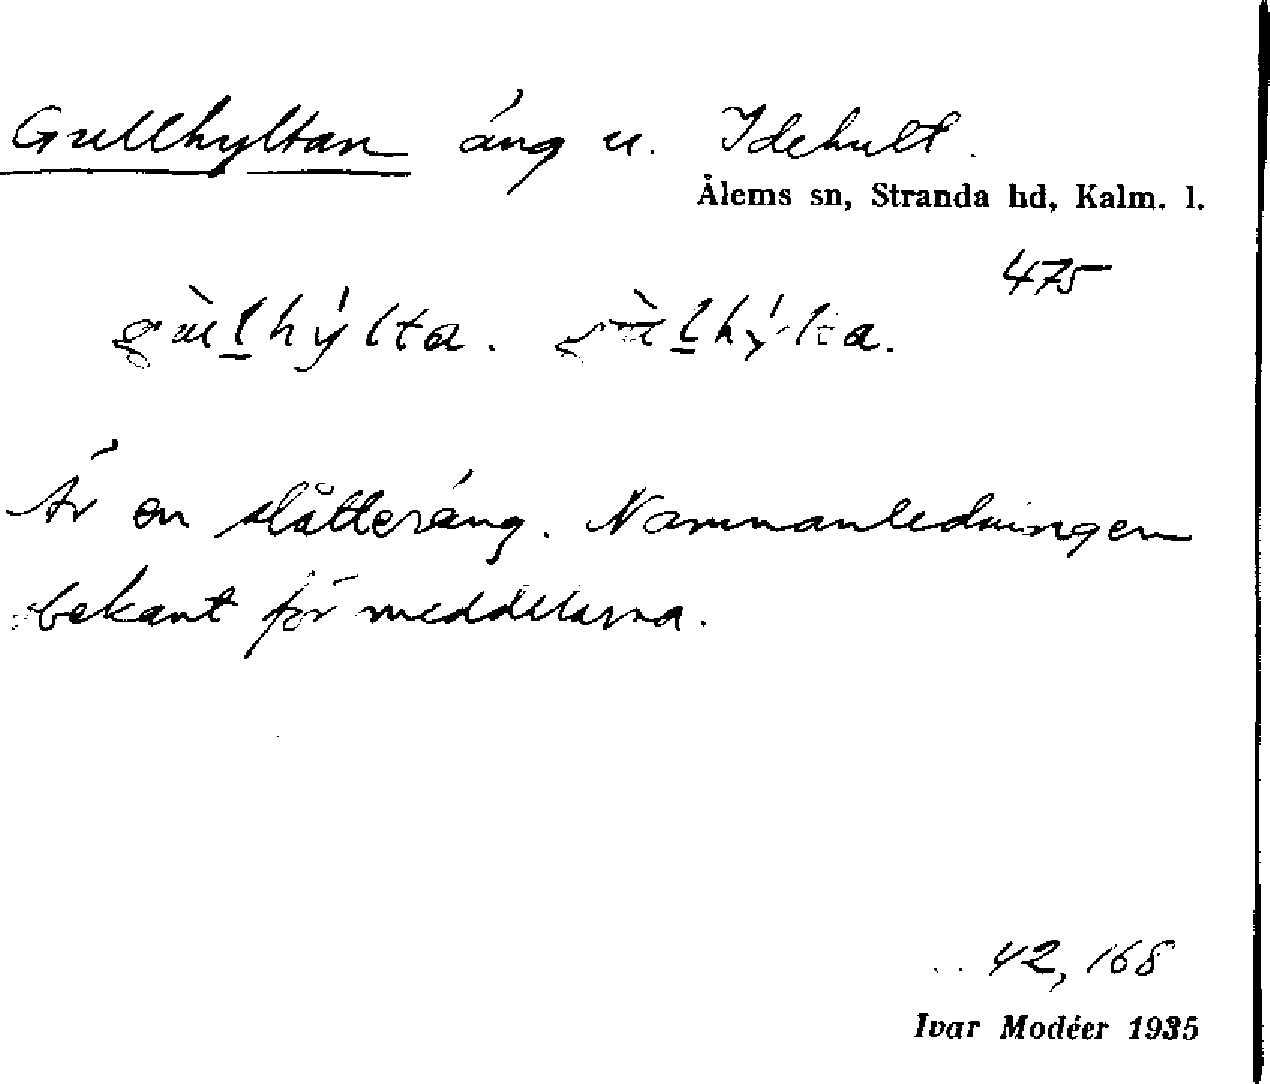 Gullhyltan äng u. Idehult.
Ålems sn, Stranda hd, Kalm. l.
475
gùlhýlta. gùlhýlta.
Är en slätteräng. Namnanledningen
bekant för meddelarna.
42, 168
Ivar Modéer 1935